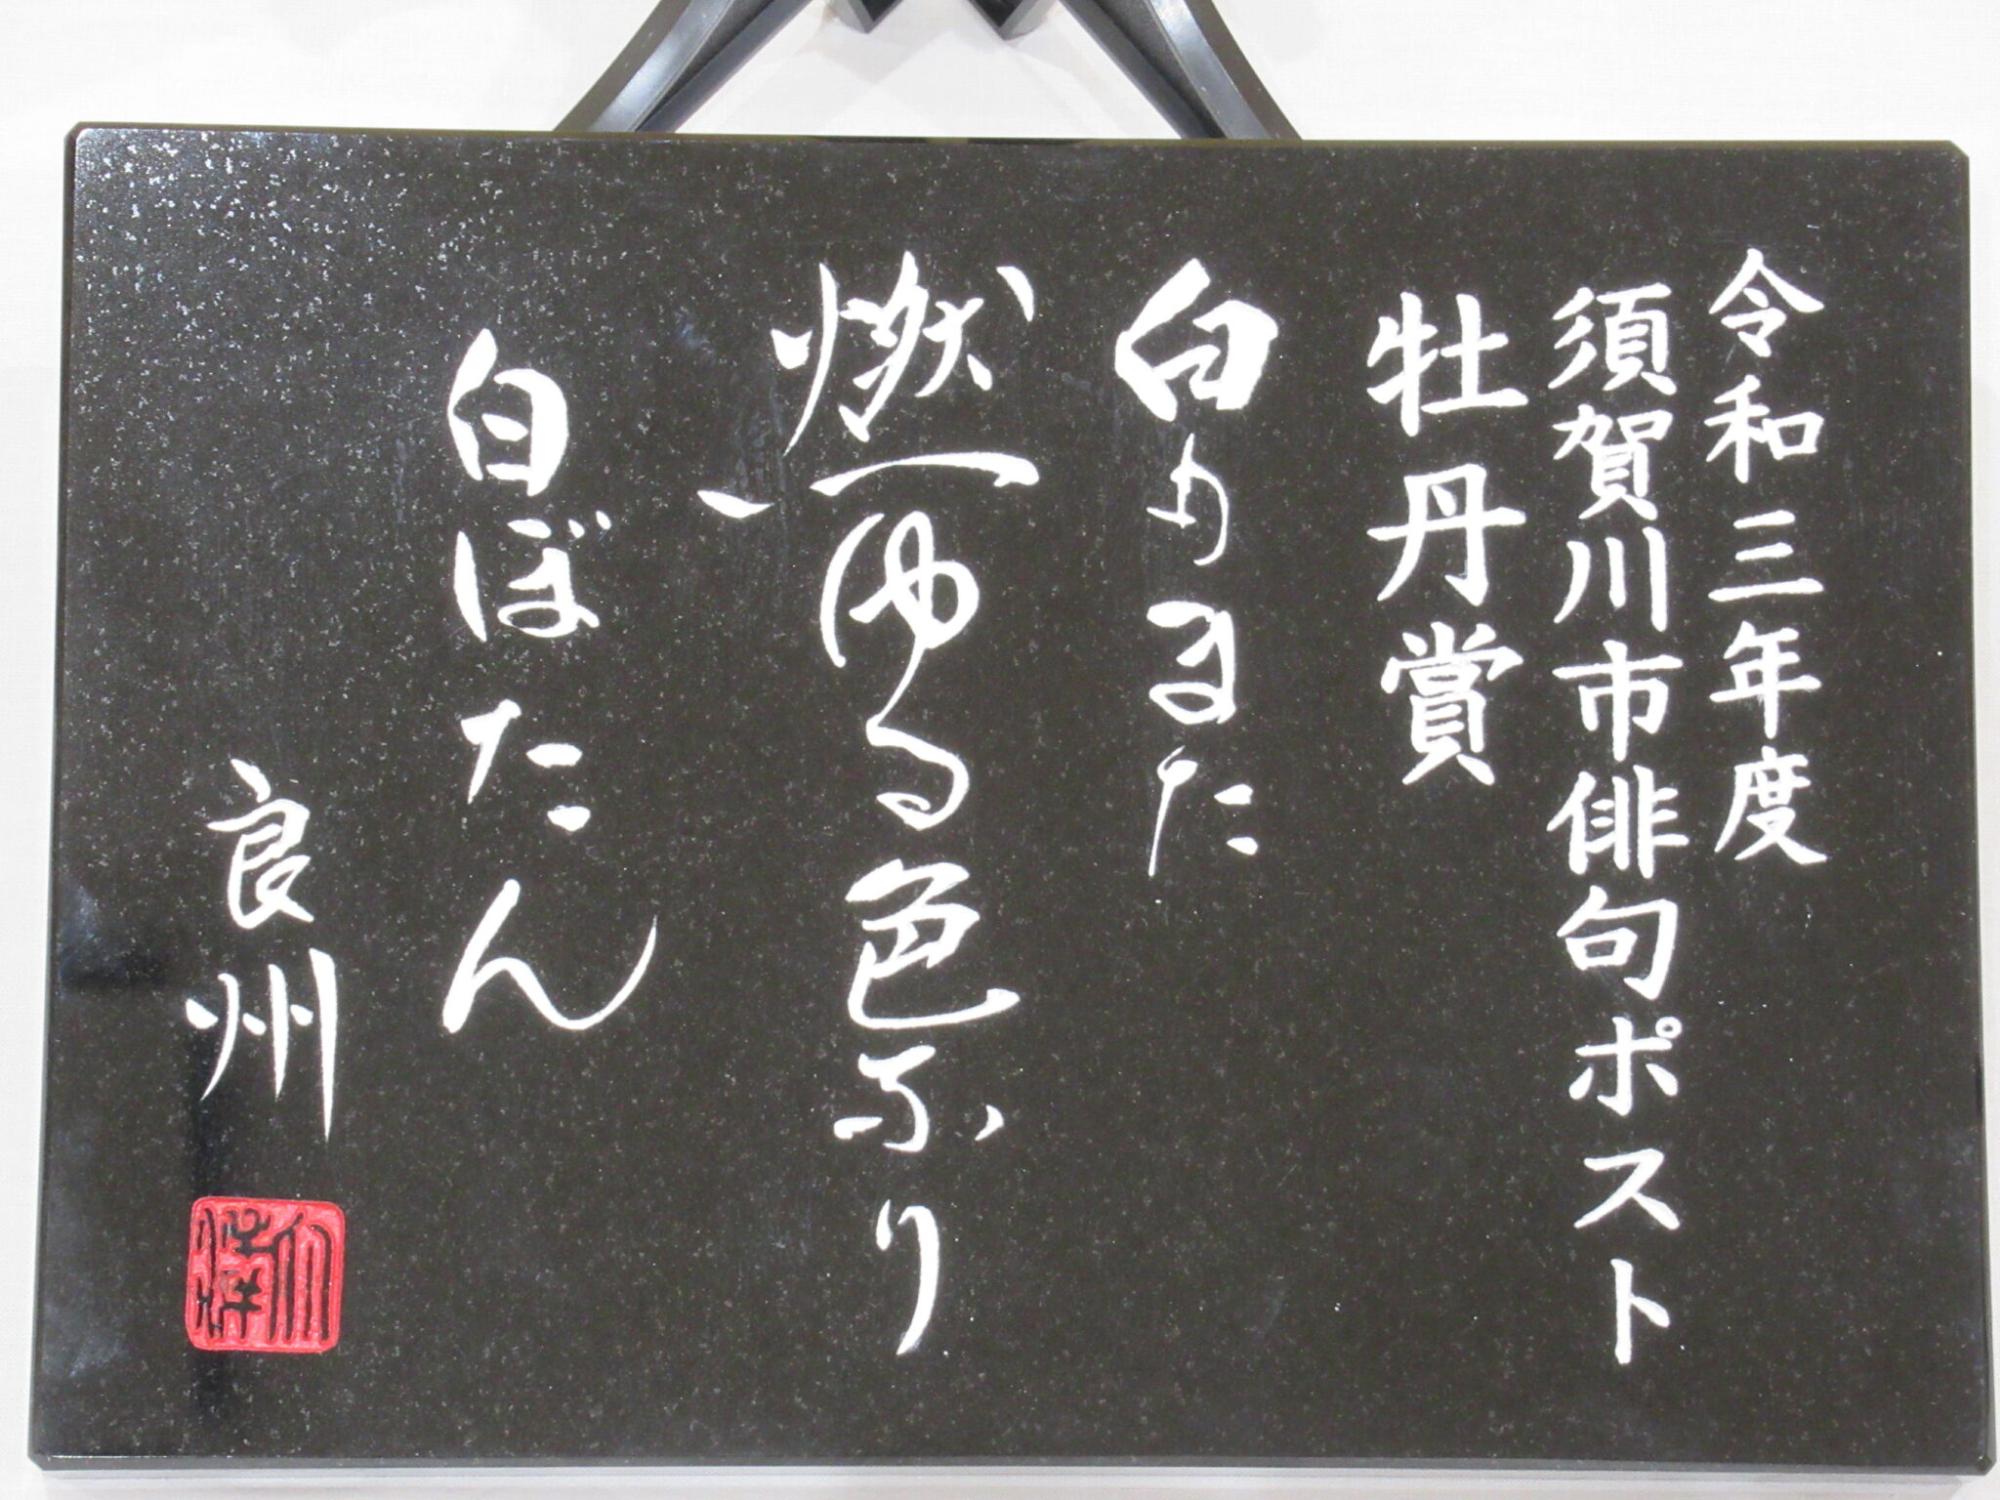 令和三年度
須賀川市俳句ポスト
牡丹賞
白もまた
燃ゆる色なり
白ぼたん
良州